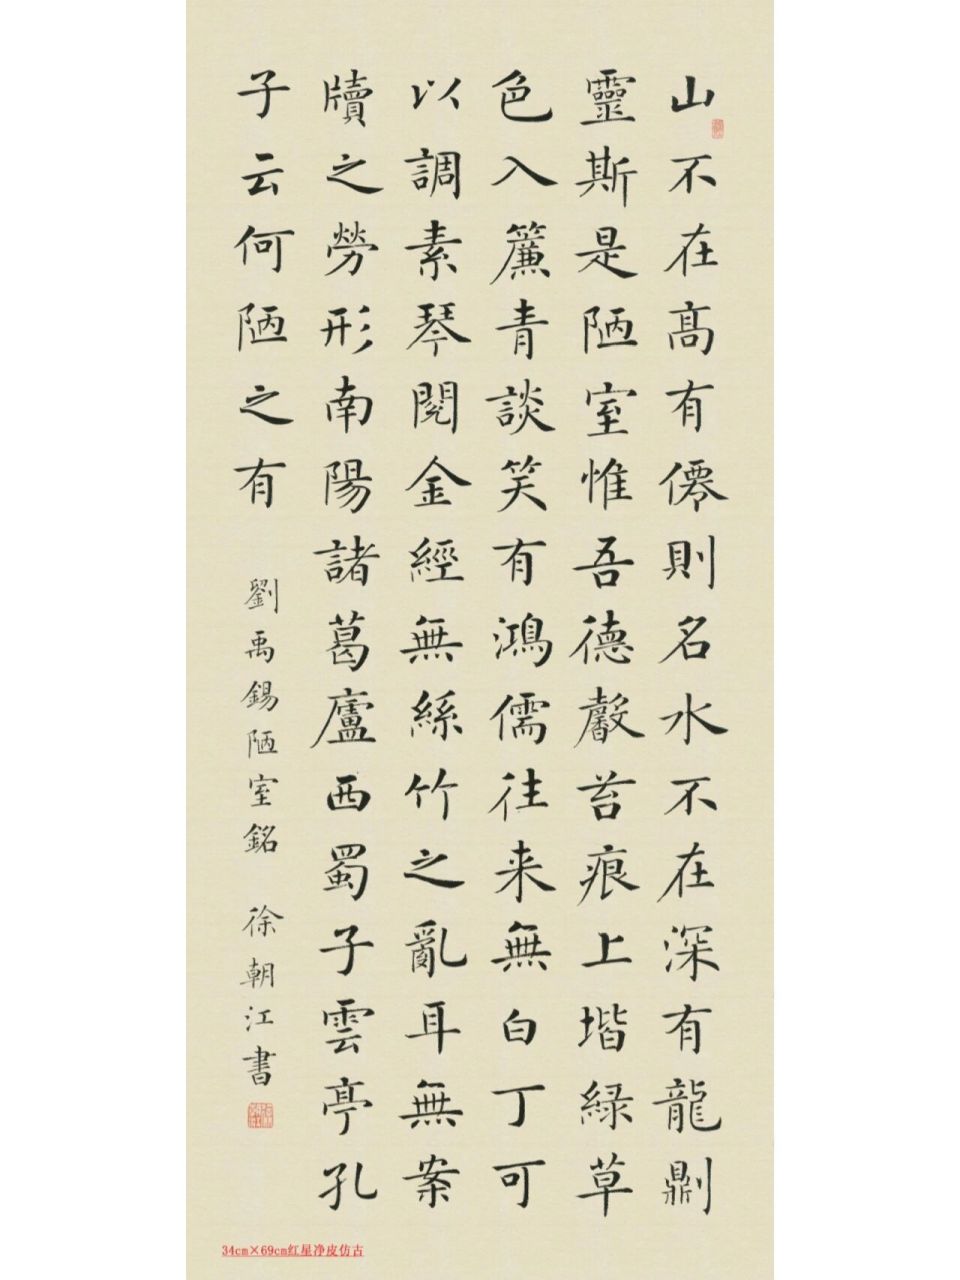 山不在高有僊則名水不在深有龍劓
靈斯是陋室惟吾德馨苔痕上堦緑草
色入簾青談笑有鴻儒往来無白丁可
以調素琴閱金經無絲竹之亂耳無案
牘之勞形南陽諸葛廬西蜀子雲亭孔
子云何陋之有
劉禹錫陋室銘 徐朝江書
34cm×69cm红星净皮仿古